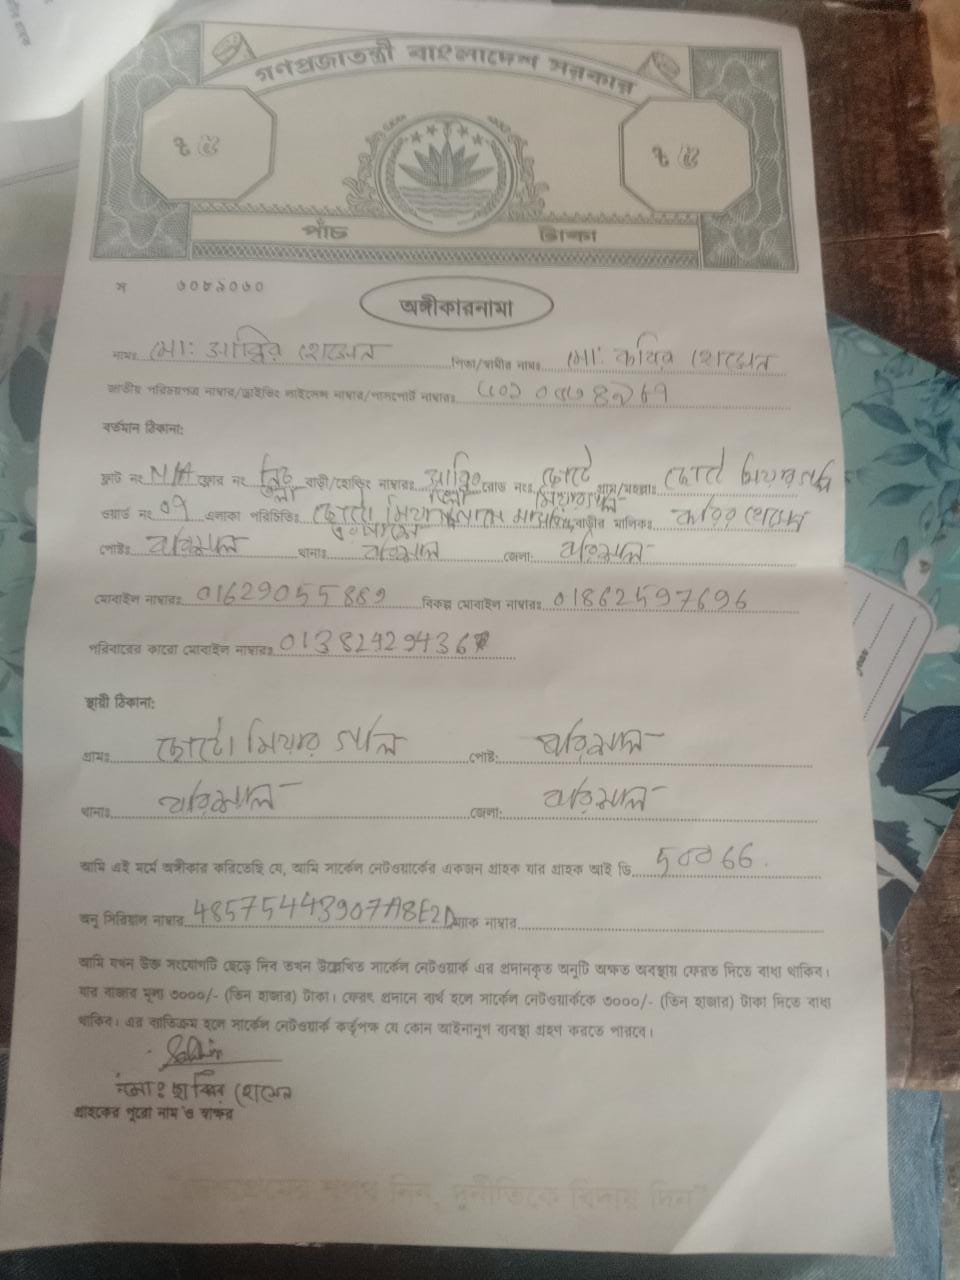 গণপ্রজাতন্ত্রী বাংলাদেশ সরকার
৳ ৫ ৳ ৫
পাঁচ টাকা
অঙ্গীকারনামা
নামঃ মো: সাব্বির হোসেন পিতা/স্বামীর নামঃ মো: কবির হোসেন
জাতীয় পরিচয়পত্র নাম্বার/ড্রাইভিং লাইসেন্স নাম্বার/পাসপোর্ট নাম্বারঃ
বর্তমান ঠিকানা:
ফ্লাট নং N/A ফ্লোর নং নিচ তলা বাড়ী/হোল্ডিং নাম্বারঃ রোড নংঃ গ্রাম/মহল্লাঃ ছোট মিয়ার গলি
ওয়ার্ড নং 09 এলাকা পরিচিতিঃ বাড়ীর মালিকঃ কবির হোসেন
পোষ্টঃ বরিশাল থানাঃ বরিশাল জেলা: বরিশাল
মোবাইল নাম্বারঃ 01629055889 বিকল্প মোবাইল নাম্বারঃ 01862597696
পরিবারের কারো মোবাইল নাম্বারঃ
স্থায়ী ঠিকানা:
গ্রামঃ ছোটো মিয়ার গলি পোষ্ট: বরিশাল
থানাঃ বরিশাল জেলা: বরিশাল
আমি এই মর্মে অঙ্গীকার করিতেছি যে, আমি সার্কেল নেটওয়ার্কের একজন গ্রাহক যার গ্রাহক আই ডি
অনু সিরিয়াল নাম্বার 48575443907A8E2D ম্যাক নাম্বার
আমি যখন উক্ত সংযোগটি ছেড়ে দিব তখন উল্লেখিত সার্কেল নেটওয়ার্ক এর প্রদানকৃত অনুটি অক্ষত অবস্থায় ফেরত দিতে বাধ্য থাকিব।
যার বাজার মূল্য ৩০০০/- (তিন হাজার) টাকা। ফেরৎ প্রদানে ব্যর্থ হলে সার্কেল নেটওয়ার্ককে ৩০০০/- (তিন হাজার) টাকা দিতে বাধ্য
থাকিব। এর ব্যতিক্রম হলে সার্কেল নেটওয়ার্ক কর্তৃপক্ষ যে কোন আইনানুগ ব্যবস্থা গ্রহণ করতে পারবে।
সাব্বির হোসেন
গ্রাহকের পুরো নাম ও স্বাক্ষর